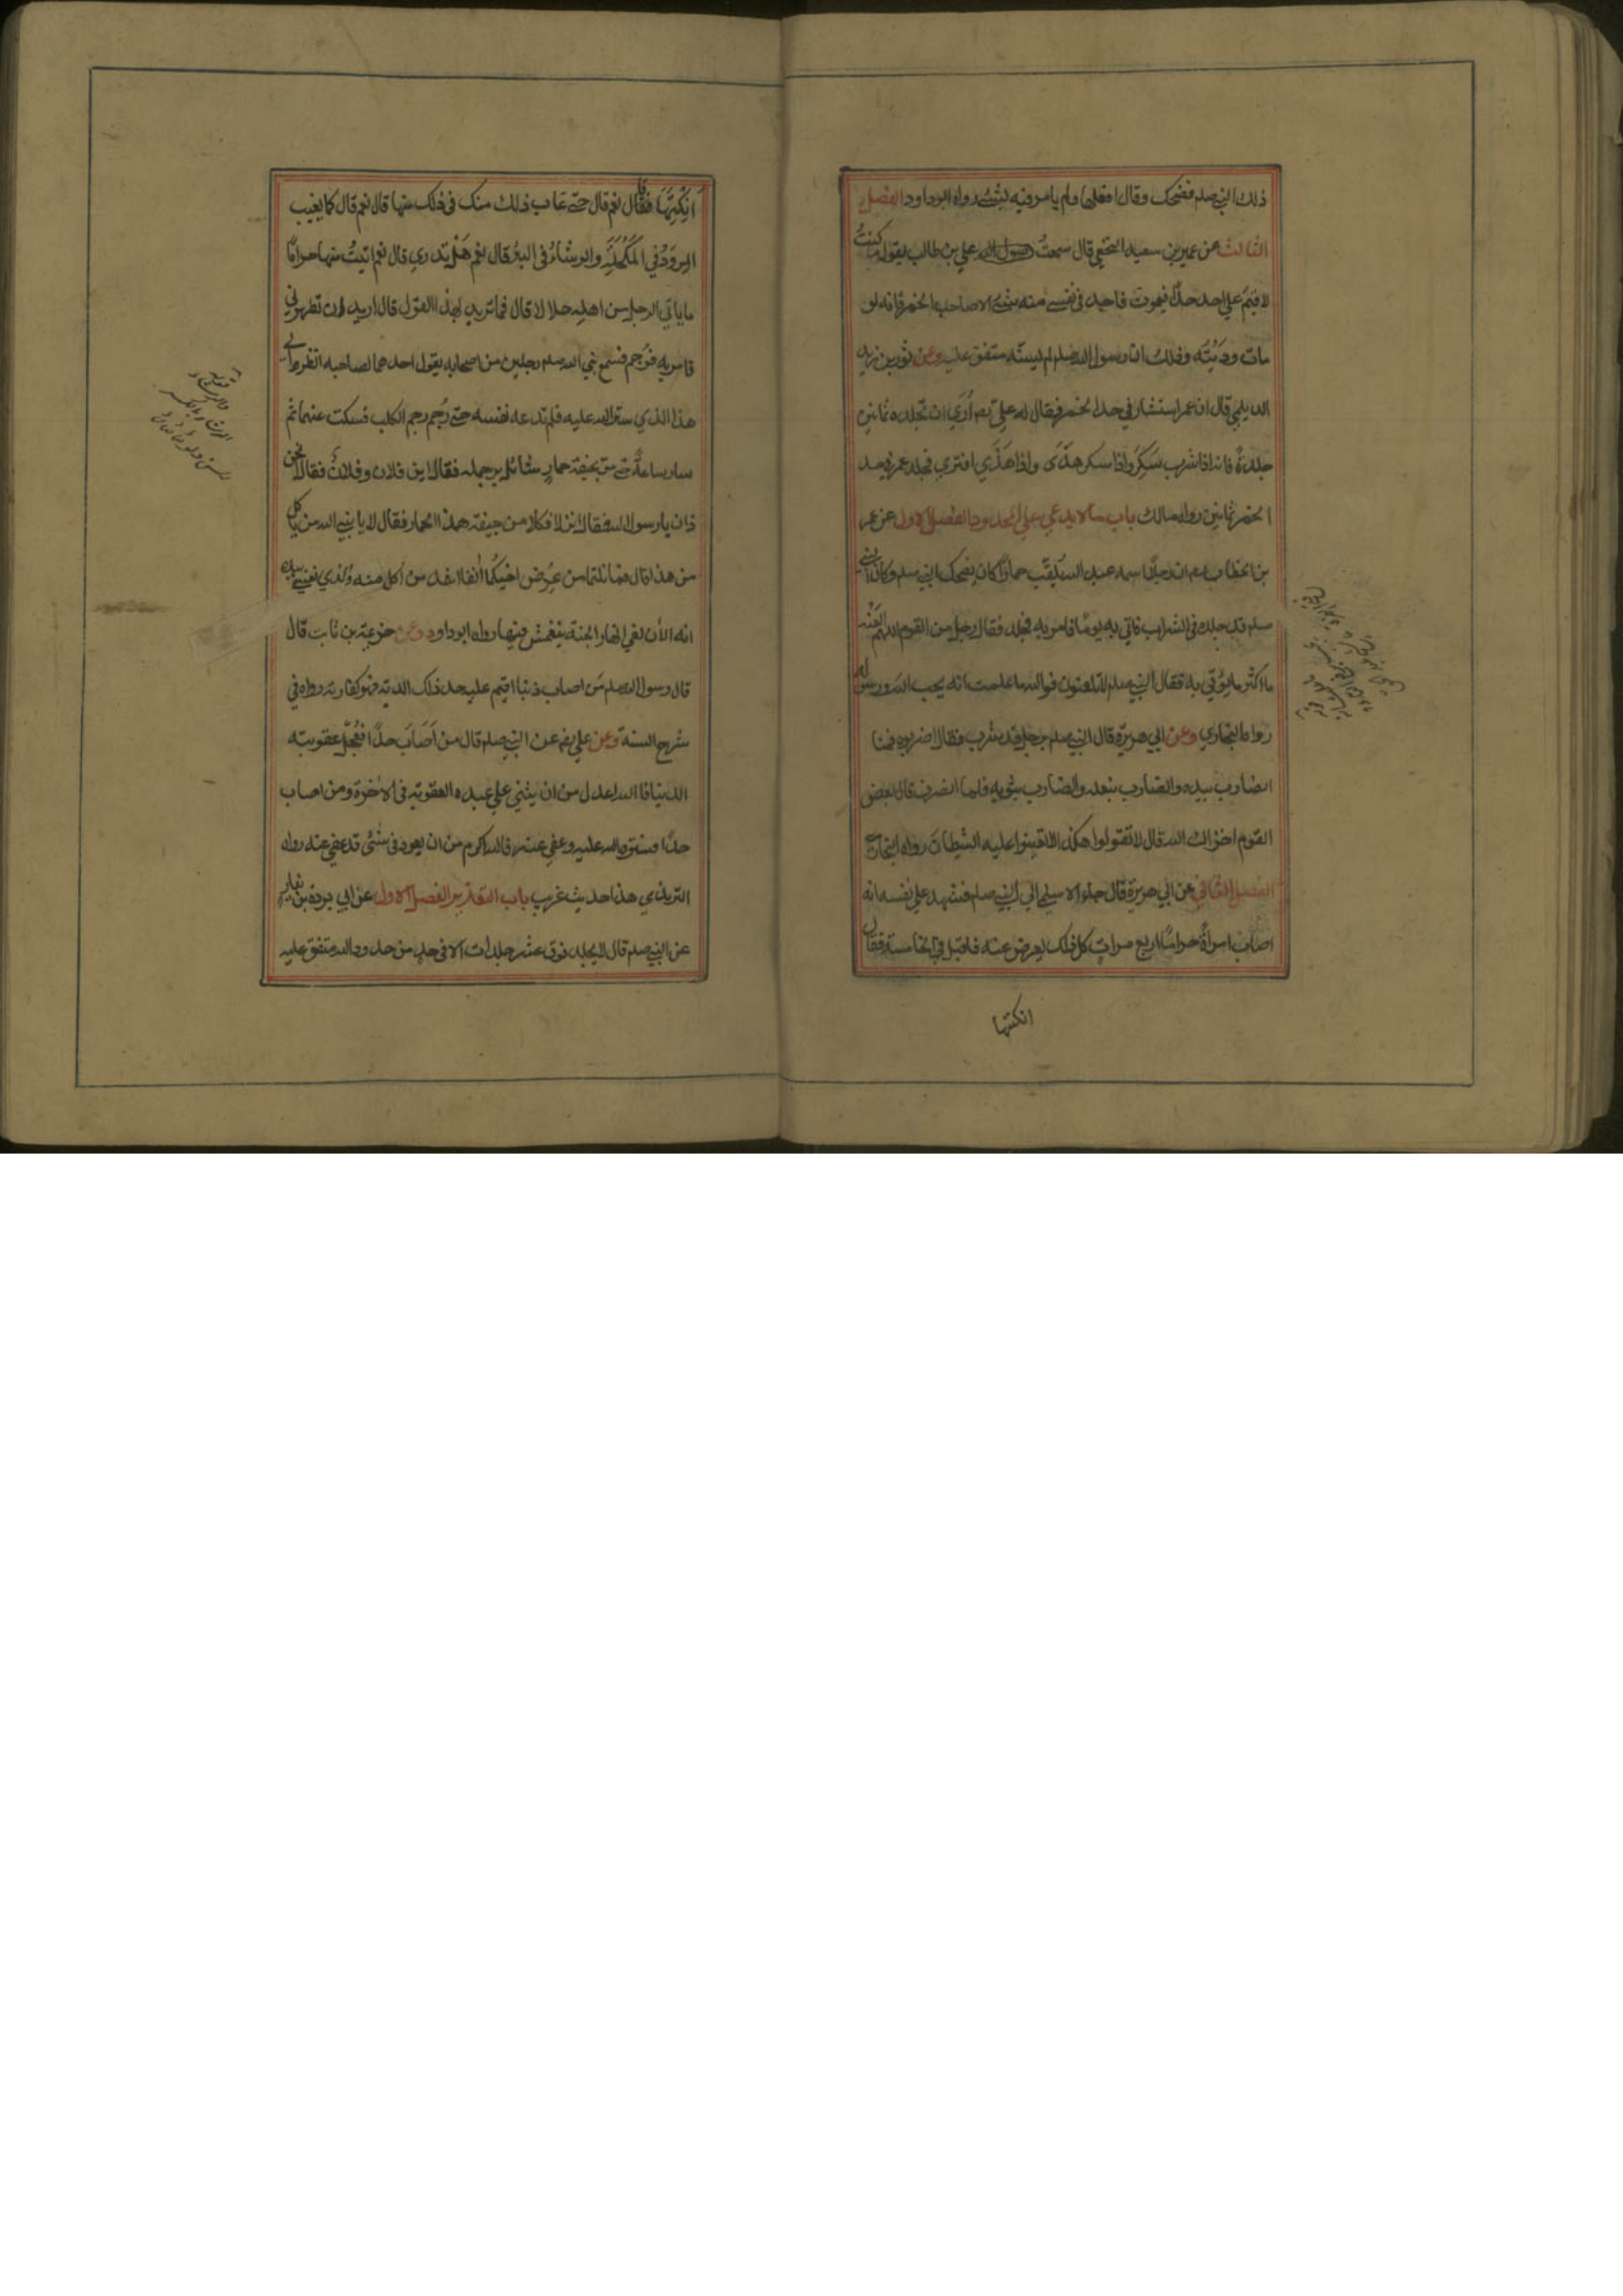 ذلك النبي صلعم فضحك وقال افعلها ولم يامر فيه بشئ رواه ابوداود الفصل
الثالث عن عمير بن سعيد النخعي قال سمعت رسول الله علي بن طالب يقول ما كنت
لاقيم على احد حدا فيموت فاجد في نفسي منه شئ الا صاحب الخمر فانه لو
مات وديته وذلك ان رسول الله صلعم لم يسنه متفق عليه وعن ثور بن زيد
الديلمي قال ان عمر استشار في حد الخمر فقال له علي رضه ارى ان تجلده ثمانين
جلدة فانه اذا شرب سكر واذا سكر هذى واذا هذى افترى فجلد عمر في حد
الخمر ثمانين رواه مالك باب ما لا يدعى على المحدود الفصل الاول عن عمر
بن الخطاب رضه ان رجلا اسمه عبد الله يلقب حمارا كان يضحك النبي صلعم وكان النبي
صلعم قد جلده في الشراب فاتي به يوما فامر به فجلد فقال رجل من القوم اللهم العنه
ما اكثر ما يؤتى به فقال النبي صلعم لا تلعنوه فوالله ما علمت انه يحب الله ورسوله
رواه البخاري وعن ابي هريرة قال النبي صلعم برجل قد شرب فقال اضربوه فمنا
الضارب بيده والضارب بنعله والضارب بثوبه فلما انصرف قال بعض
القوم اخزاك الله قال لا تقولوا هكذا لا تعينوا عليه الشيطان رواه البخاري
الفصل الثاني عن ابي هريرة قال جاء الاسلمي الى النبي صلعم فشهد على نفسه انه
اصاب امراة حراما اربع مرات كل ذلك يعرض عنه فاقبل في الخامسة فقال
انكتها
انكتها فقال نعم قال حتى غاب ذلك منك في ذلك منها قال نعم قال كما يغيب
المرود في المكحلة والرشاء في البئر قال نعم هل تدري قال نعم اتيت منها حراما
ما ياتي الرجل من اهله حلالا قال فما تريد بهذا القول قال اريد ان تطهرني
فامر به فرجم فسمع نبي الله صلعم رجلين من اصحابه يقول احدهما لصاحبه انظر الى
هذا الذي ستر الله عليه فلم تدعه نفسه حتى رجم رجم الكلب فسكت عنهما ثم
سار ساعة حتى مر بجيفة حمار شائل برجله فقال اين فلان وفلان فقالا نحن
ذان يا رسول الله فقال انزلا فكلا من جيفة هذا الحمار فقال لا يا نبي الله من ياكل
من هذا قال فما نلتما من عرض اخيكما انفا اشد من اكل منه والذي نفسي بيده
انه الان لفي انهار الجنة ينغمس فيها رواه ابوداود وعن خزيمة بن ثابت قال
قال رسول الله صلعم من اصاب ذنبا اقيم عليه حد ذلك الذنب فهو كفارته رواه في
شرح السنة وعن علي رضه عن النبي صلعم قال من اصاب حدا فعجل عقوبته
الدنيا فالله اعدل من ان يثني على عبده العقوبة في الاخرة ومن اصاب
حدا فستره الله عليه وعفي عنه فالله اكرم من ان يعود في شئ قد عفي عنه رواه
الترمذي هذا حديث غريب باب التعذير الفصل الاول عن ابي بردة بن نيار
عن النبي صلعم قال لا يجلد فوق عشر جلدات الا في حد من حدود الله متفق عليه